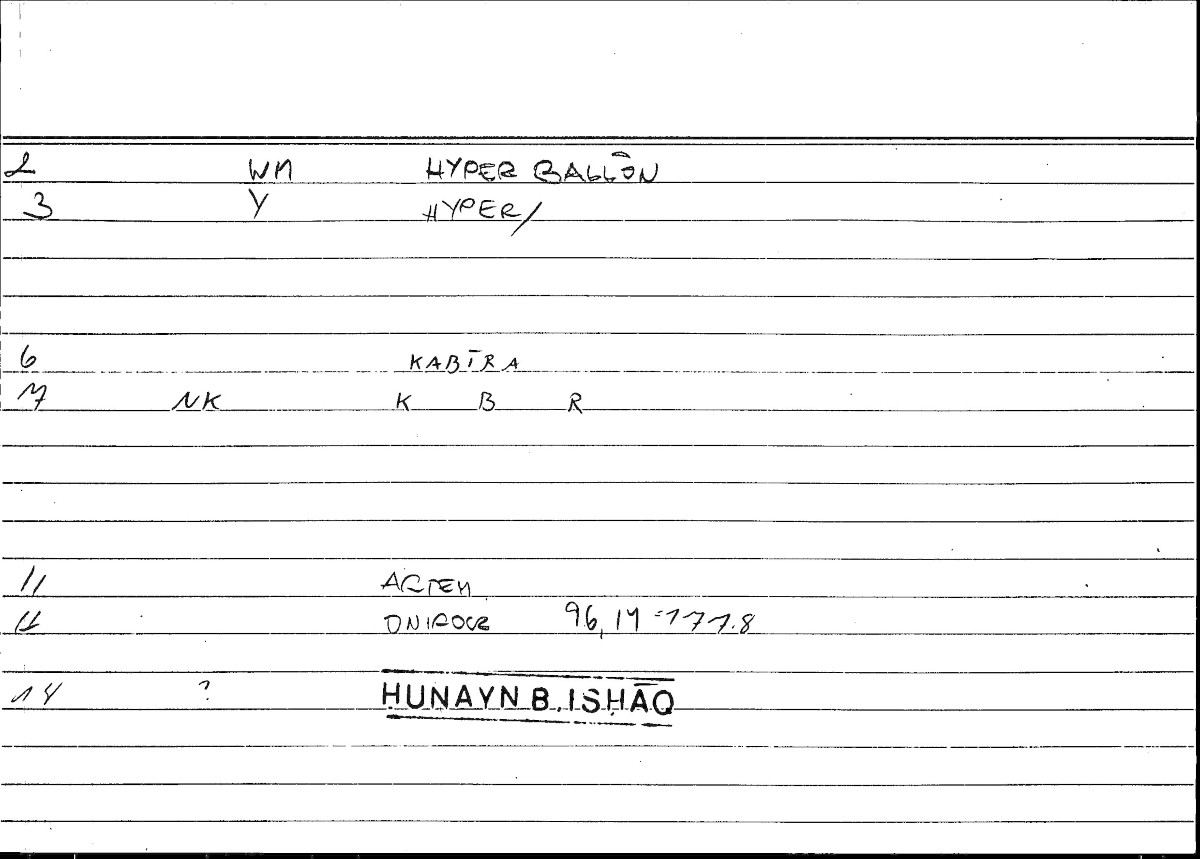 2 WM HYPER BALLŌN
3 Y HYPER/
6 KABĪRA
7 NK K B R
11 ARTEM
12 ONIROCR 96,14 = 177.8
14 ? ḤUNAYN B. ISḤĀQ